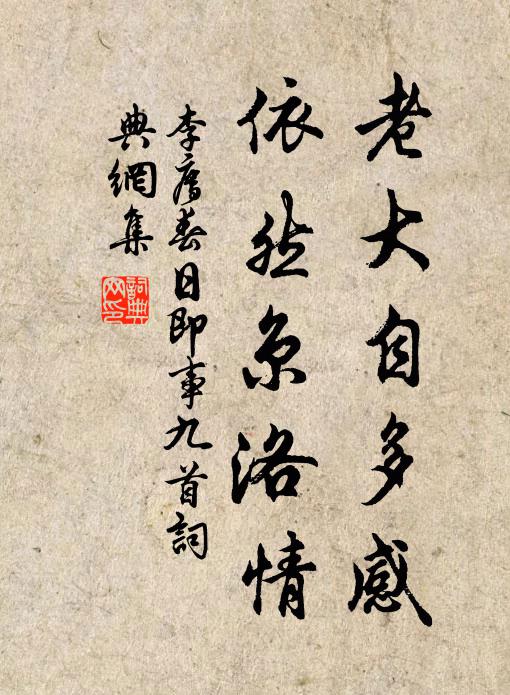 老大自多感
依然京洛情
李廌春日即事九首詞
典網集
詞典
网印